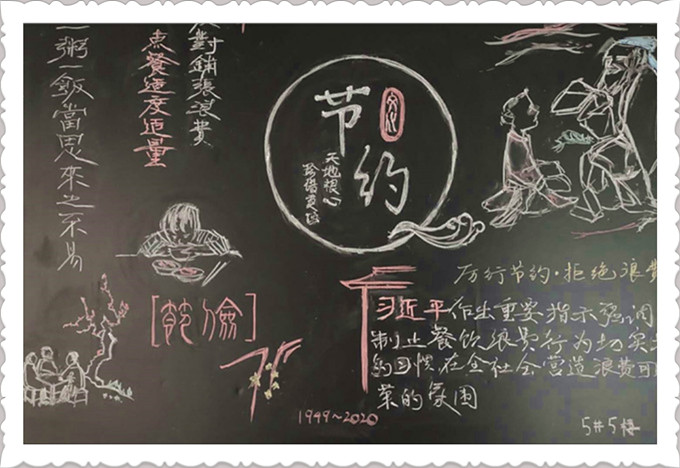 一粥一飯當思來之不易
點餐適度适量
反對鋪張浪費
节约
文化
天地根心
珍惜
厉行节约·拒绝浪費
习近平作出重要指示强调
制止餐饮浪费行为切实
的习惯在全社会营造浪费可
菜的氛围
[節儉]
75
1949~2020
5#5楼